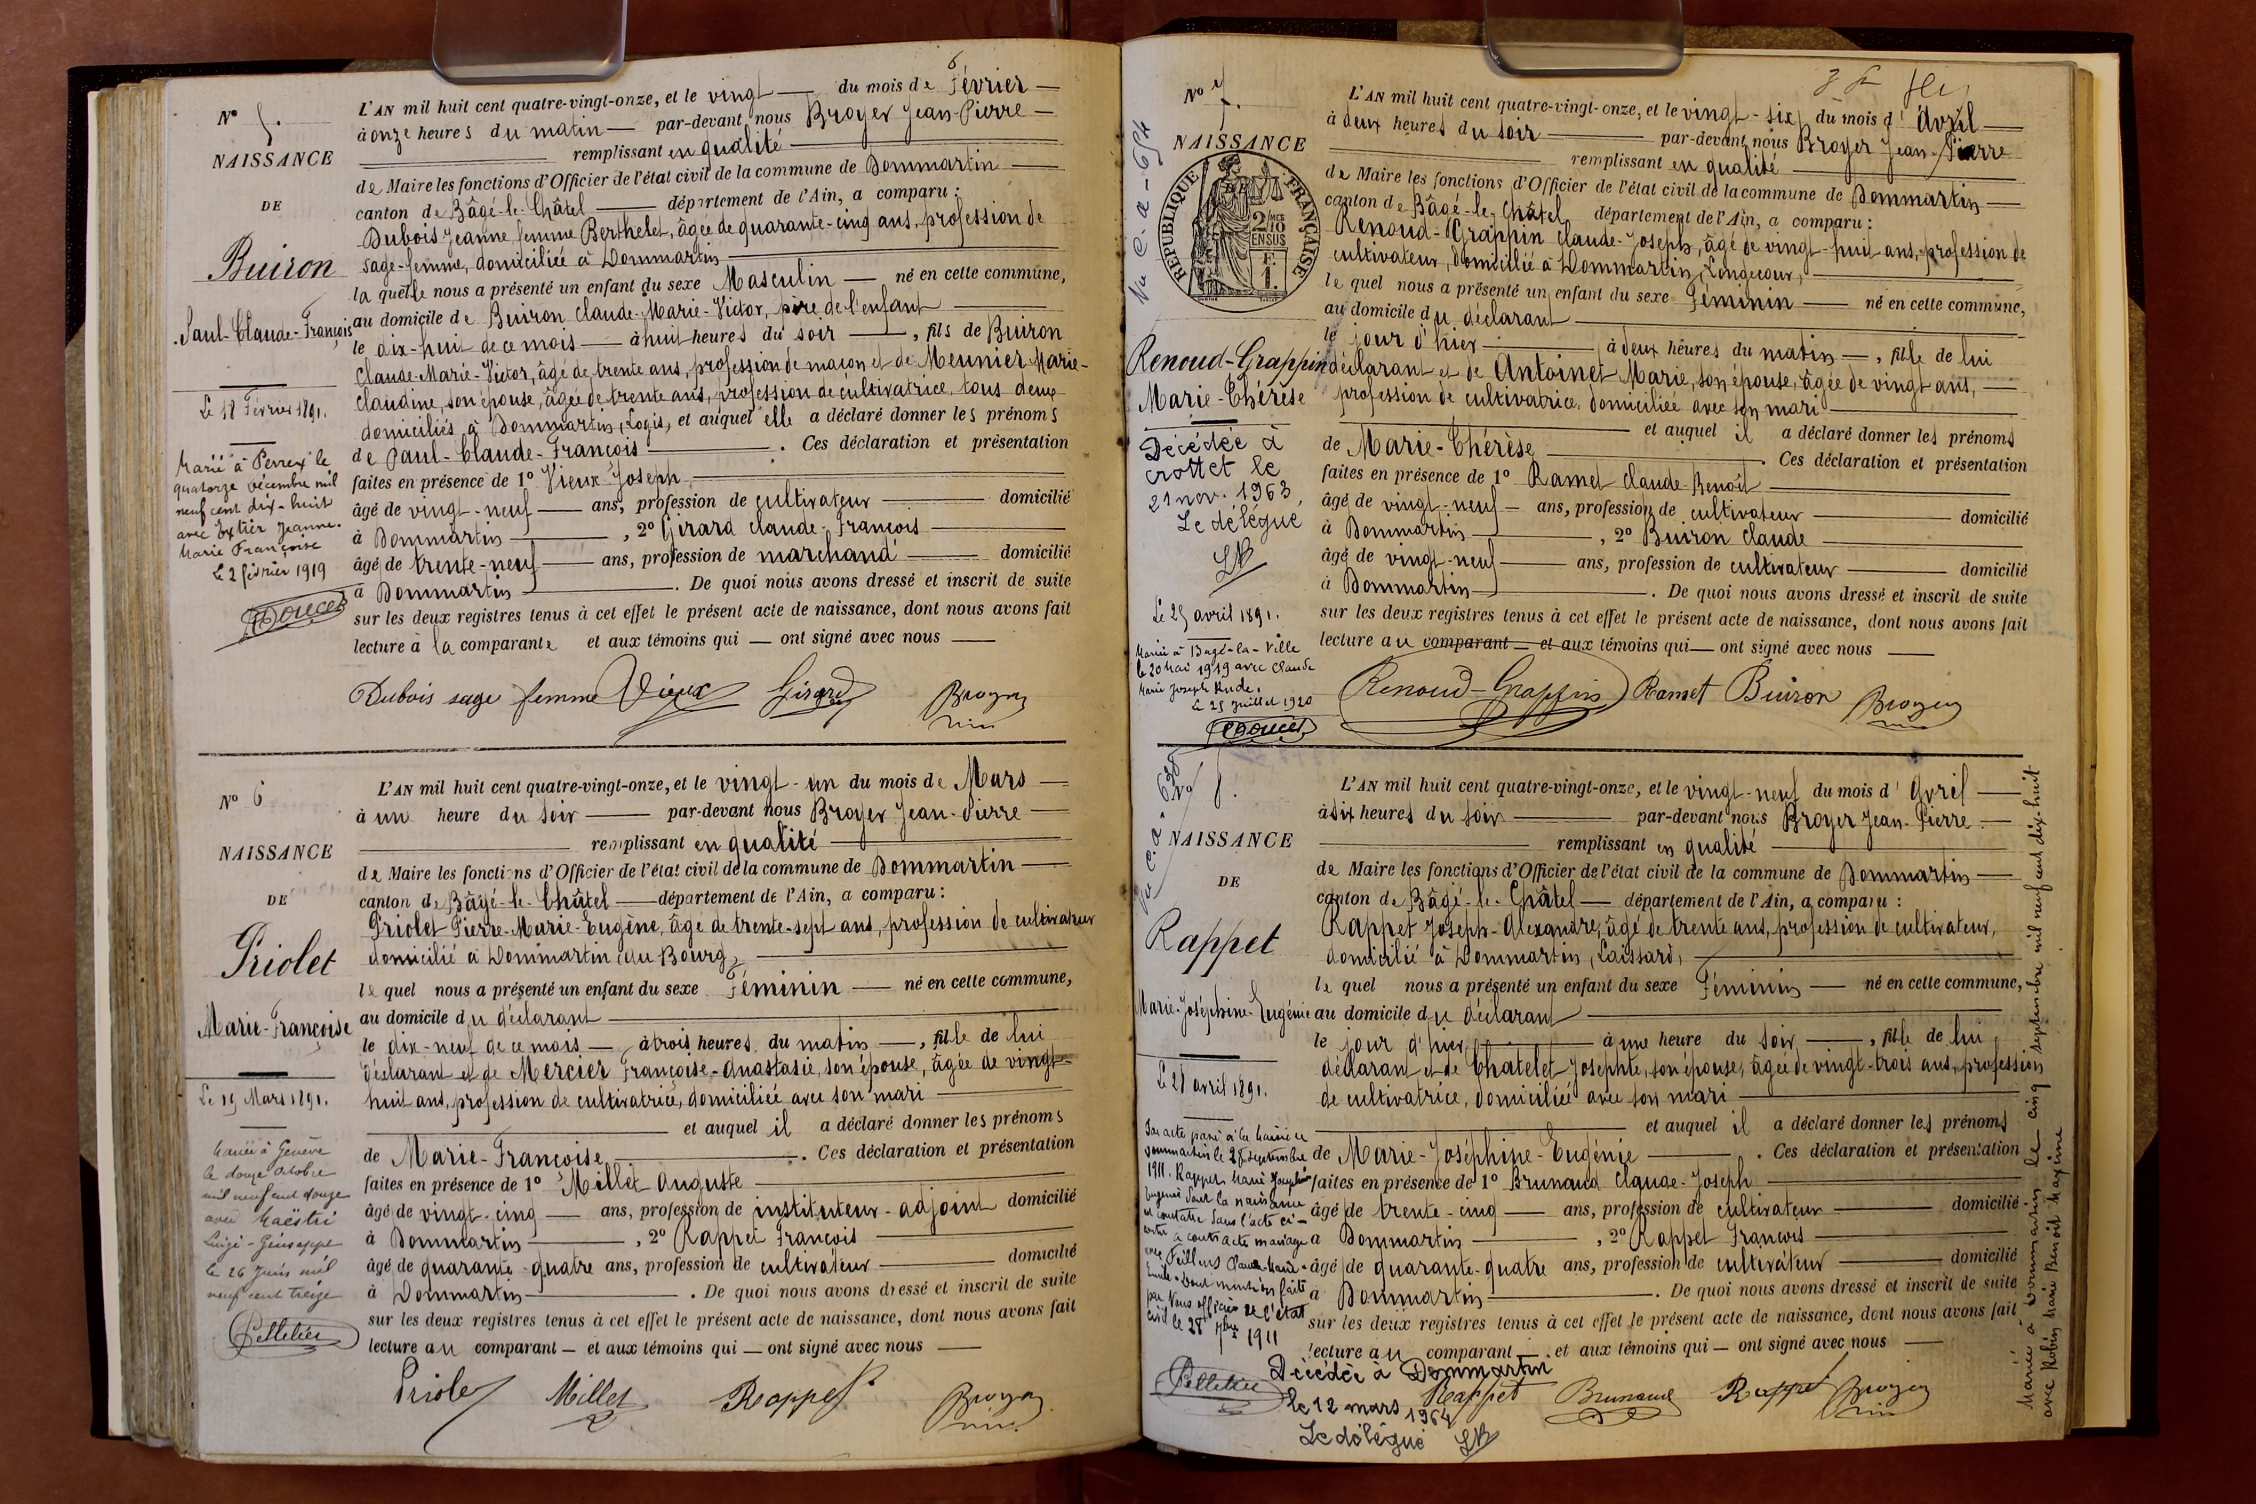 N° 5.
NAISSANCE
DE
Buiron
Paul-Claude-François
Le 18 Février 1891.
Marié à Perrex le
quatorze décembre mil
neuf cent dix-huit
avec Extier Jeanne-
Marie Françoise
Le 2 février 1919
Doucet
6
L'AN mil huit cent quatre-vingt-onze, et le vingt du mois de Février
à onze heures du matin par-devant nous Broyer Jean-Pierre
remplissant en qualité
de Maire les fonctions d'Officier de l'état civil de la commune de Dommartin
canton de Bâgé-le-Châtel département de l'Ain, a comparu :
Dubois Jeanne femme Berthelet, âgée de quarante-cinq ans, profession de
sage-femme, domiciliée à Dommartin
laquelle nous a présenté un enfant du sexe Masculin né en cette commune,
au domicile de Buiron Claude-Marie-Victor, père de l'enfant
le dix-huit de ce mois à huit heures du soir, fils de Buiron
Claude-Marie-Victor, âgé de trente ans, profession de maçon et de Meunier Marie-
Claudine, son épouse, âgée de trente ans, profession de cultivatrice, tous deux
domiciliés à Dommartin, Logis, et auquel elle a déclaré donner les prénoms
de Paul-Claude-François. Ces déclaration et présentation
faites en présence de 1° Vieux Joseph,
âgé de vingt-neuf ans, profession de cultivateur domicilié
à Dommartin, 2° Girard Claude-François
âgé de trente-neuf ans, profession de marchand domicilié
à Dommartin. De quoi nous avons dressé et inscrit de suite
sur les deux registres tenus à cet effet le présent acte de naissance, dont nous avons fait
lecture à la comparante et aux témoins qui ont signé avec nous
Dubois sage femme Vieux Girard Broyer
N° 6
NAISSANCE
DE
Priolet
Marie-Françoise
Le 19 Mars 1891.
Mariée à Genève
le douze octobre
mil neuf cent douze
avec Maëstri
Luigi-Giuseppe
le 26 Juin mil
neuf cent treize
Pelletier
L'AN mil huit cent quatre-vingt-onze, et le vingt-un du mois de Mars
à une heure du soir par-devant nous Broyer Jean-Pierre
remplissant en qualité
de Maire les fonctions d'Officier de l'état civil de la commune de Dommartin
canton de Bâgé-le-Châtel département de l'Ain, a comparu :
Priolet Pierre-Marie-Eugène, âgé de trente-sept ans, profession de cultivateur
domicilié à Dommartin (au Bourg)
lequel nous a présenté un enfant du sexe Féminin né en cette commune,
au domicile du déclarant
le dix-neuf de ce mois à trois heures du matin, fille de lui
déclarant et de Mercier Françoise-Anastasie, son épouse, âgée de vingt-
huit ans, profession de cultivatrice, domiciliée avec son mari
et auquel il a déclaré donner les prénoms
de Marie-Françoise. Ces déclaration et présentation
faites en présence de 1° Millet Auguste
âgé de vingt-cinq ans, profession de instituteur-adjoint domicilié
à Dommartin, 2° Rappet François
âgé de quarante-quatre ans, profession de cultivateur domicilié
à Dommartin. De quoi nous avons dressé et inscrit de suite
sur les deux registres tenus à cet effet le présent acte de naissance, dont nous avons fait
lecture au comparant et aux témoins qui ont signé avec nous
Priolet Millet Rappet Broyer
N° 7.
NAISSANCE
RÉPUBLIQUE FRANÇAISE
2/10 EN SUS
Renoud-Grappin
Marie-Thérèse
Décédée à
Crottet le
21 nov. 1963,
Le délégué
Le 25 avril 1891.
Mariée à Bagé-la-Ville
le 20 Mai 1919 avec Claude
Marie Joseph Rude.
Le 25 Juillet 1920
Doucet
L'AN mil huit cent quatre-vingt-onze, et le vingt-six du mois d'Avril
à deux heures du soir par-devant nous Broyer Jean-Pierre
remplissant en qualité
de Maire les fonctions d'Officier de l'état civil de la commune de Dommartin
canton de Bâgé-le-Châtel département de l'Ain, a comparu :
Renoud-Grappin Claude-Joseph, âgé de vingt-huit ans, profession de
cultivateur, domicilié à Dommartin, Longecour,
lequel nous a présenté un enfant du sexe Féminin né en cette commune,
au domicile du déclarant
le jour d'hier à deux heures du matin, fille de lui
déclarant et de Antoinet Marie, son épouse, âgée de vingt ans,
profession de cultivatrice, domiciliée avec son mari
et auquel il a déclaré donner les prénoms
de Marie-Thérèse. Ces déclaration et présentation
faites en présence de 1° Ramet Claude-Benoît
âgé de vingt-neuf ans, profession de cultivateur domicilié
à Dommartin, 2° Buiron Claude
âgé de vingt-neuf ans, profession de cultivateur domicilié
à Dommartin. De quoi nous avons dressé et inscrit de suite
sur les deux registres tenus à cet effet le présent acte de naissance, dont nous avons fait
lecture au comparant et aux témoins qui ont signé avec nous
Renoud-Grappin Ramet Buiron Broyer
N° 8.
NAISSANCE
DE
Rappet
Marie-Joséphine-Eugénie
Le 28 avril 1891.
Par acte passé à la Mairie de
Dommartin le 28 septembre
1911. Rappet Marie Joséphine
Eugénie dont la naissance
est constatée dans l'acte ci-
contre a contracté mariage
avec Feillens Claude-Marie-
Emile. Dont mention faite
par Nous officier de l'état
civil le 28 7bre 1911
Pelletier
L'AN mil huit cent quatre-vingt-onze, et le vingt-neuf du mois d'Avril
à six heures du soir par-devant nous Broyer Jean-Pierre
remplissant en qualité
de Maire les fonctions d'Officier de l'état civil de la commune de Dommartin
canton de Bâgé-le-Châtel département de l'Ain, a comparu :
Rappet Joseph-Alexandre, âgé de trente ans, profession de cultivateur,
domicilié à Dommartin, (Laissard)
lequel nous a présenté un enfant du sexe Féminin né en cette commune,
au domicile du déclarant
le jour d'hier à une heure du soir, fille de lui
déclarant et de Chatelet Josephte, son épouse, âgée de vingt-trois ans, profession
de cultivatrice, domiciliée avec son mari
et auquel il a déclaré donner les prénoms
de Marie-Joséphine-Eugénie. Ces déclaration et présentation
faites en présence de 1° Brunaud Claude-Joseph
âgé de trente-cinq ans, profession de cultivateur domicilié
à Dommartin, 2° Rappet François
âgé de quarante-quatre ans, profession de cultivateur domicilié
à Dommartin. De quoi nous avons dressé et inscrit de suite
sur les deux registres tenus à cet effet le présent acte de naissance, dont nous avons fait
lecture au comparant et aux témoins qui ont signé avec nous
Décédée à Dommartin
le 12 mars 1964
Le délégué
Rappet Brunaud Rappet Broyer
Mariée à Dommartin le cinq septembre mil neuf cent dix-huit
avec Robin Marie Benoit Maxime